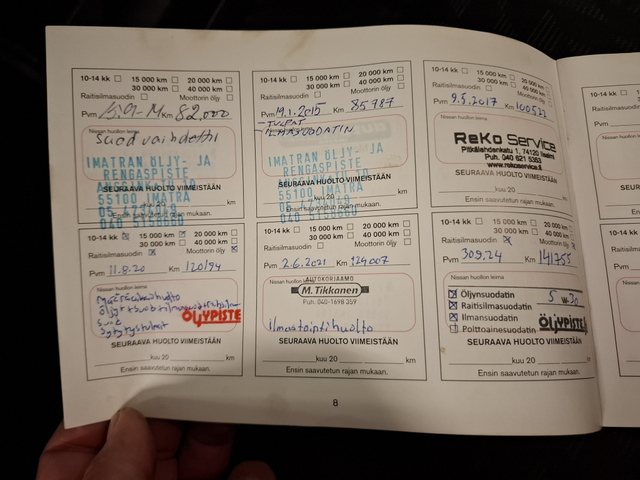 10-14 kk 15 000 km 20 000 km
30 000 km 40 000 km
Raitisilmasuodin Moottorin öljy
Pvm Km 82.000
Nissan huollon leima
Suod vaihdettu
IMATRAN ÖLJY- JA
RENGASPISTE
SEURAAVA HUOLTO VIIMEISTÄÄN
55100 IMATRA
km
Ensin saavutetun rajan mukaan.
10-14 kk 15 000 km 20 000 km
30 000 km 40 000 km
Raitisilmasuodin Moottorin öljy
Pvm 19.1.2015 Km 85787
-TULPAT
-ILMASUODATIN
IMATRAN ÖLJY- JA
RENGASPISTE
SEURAAVA HUOLTO VIIMEISTÄÄN
55100 IMATRA
kuu 20 km
Ensin saavutetun rajan mukaan.
10-14 kk 15 000 km 20 000 km
30 000 km 40 000 km
Raitisilmasuodin Moottorin öljy
Pvm 9.5.2017 Km
Nissan huollon leima
ReKo Service
Pitkälahdenkatu 1, 74120 Iisalmi
Puh. 040 621 5353
www.rekoservice.fi
SEURAAVA HUOLTO VIIMEISTÄÄN
kuu 20 km
Ensin saavutetun rajan mukaan.
10-14 kk 15 000 km 20 000 km
30 000 km 40 000 km
Raitisilmasuodin Moottorin öljy
Pvm 11.8.20 Km 120194
Nissan huollon leima
Määräaikaishuolto
ÖLJYPISTE
SEURAAVA HUOLTO VIIMEISTÄÄN
kuu 20 km
Ensin saavutetun rajan mukaan.
10-14 kk 15 000 km 20 000 km
30 000 km 40 000 km
Raitisilmasuodin Moottorin öljy
Pvm 2.6.2021 Km 124007
Nissan huollon leima
AUTOKORJAAMO
M. Tikkanen
Puh. 040-1698 359
ilmastointihuolto
SEURAAVA HUOLTO VIIMEISTÄÄN
kuu 20 km
Ensin saavutetun rajan mukaan.
10-14 kk 15 000 km 20 000 km
30 000 km 40 000 km
Raitisilmasuodin Moottorin öljy
Pvm Km 141755
Nissan huollon leima
Öljynsuodatin 5 w-30
Raitisilmasuodatin
Ilmansuodatin
Polttoainesuodatin ÖLJYPISTE
SEURAAVA HUOLTO VIIMEISTÄÄN
kuu 20 km
Ensin saavutetun rajan mukaan.
8